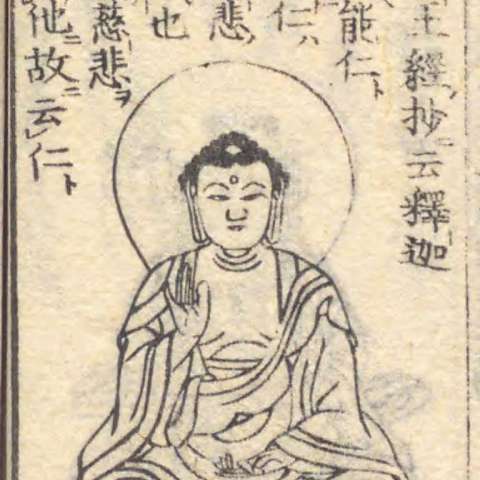 王經抄ニ云釋迦
能仁ト
仁ハ
悲
也
慈悲ヲ
他ニ故ニ云仁ト